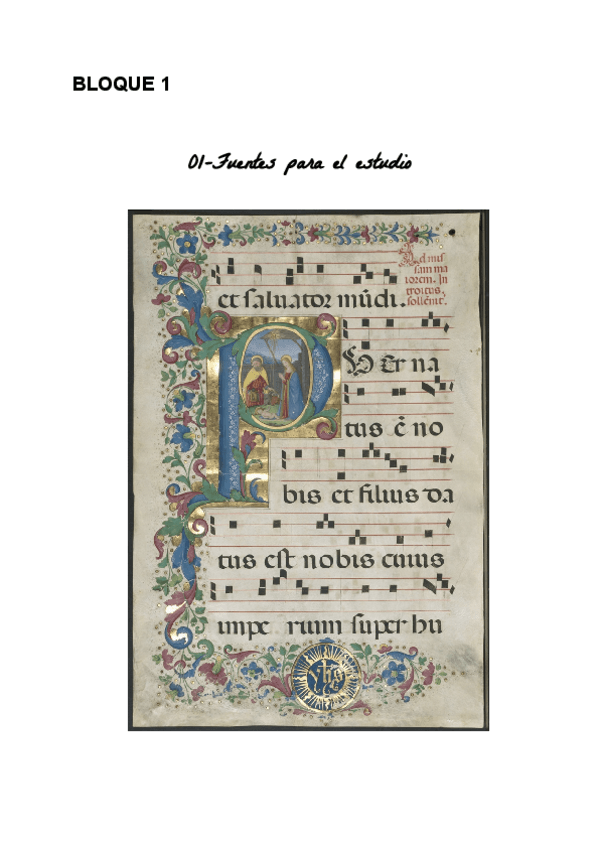 BLOQUE 1
01-Fuentes para el estudio
et saluator mūdi.
Ad mis
sam ma
iorem. In
troitus.
sollēnit'.
P
U Er na
tus ē no
bis et filius da
tus est nobis cuius
impe rium super hu
yhs